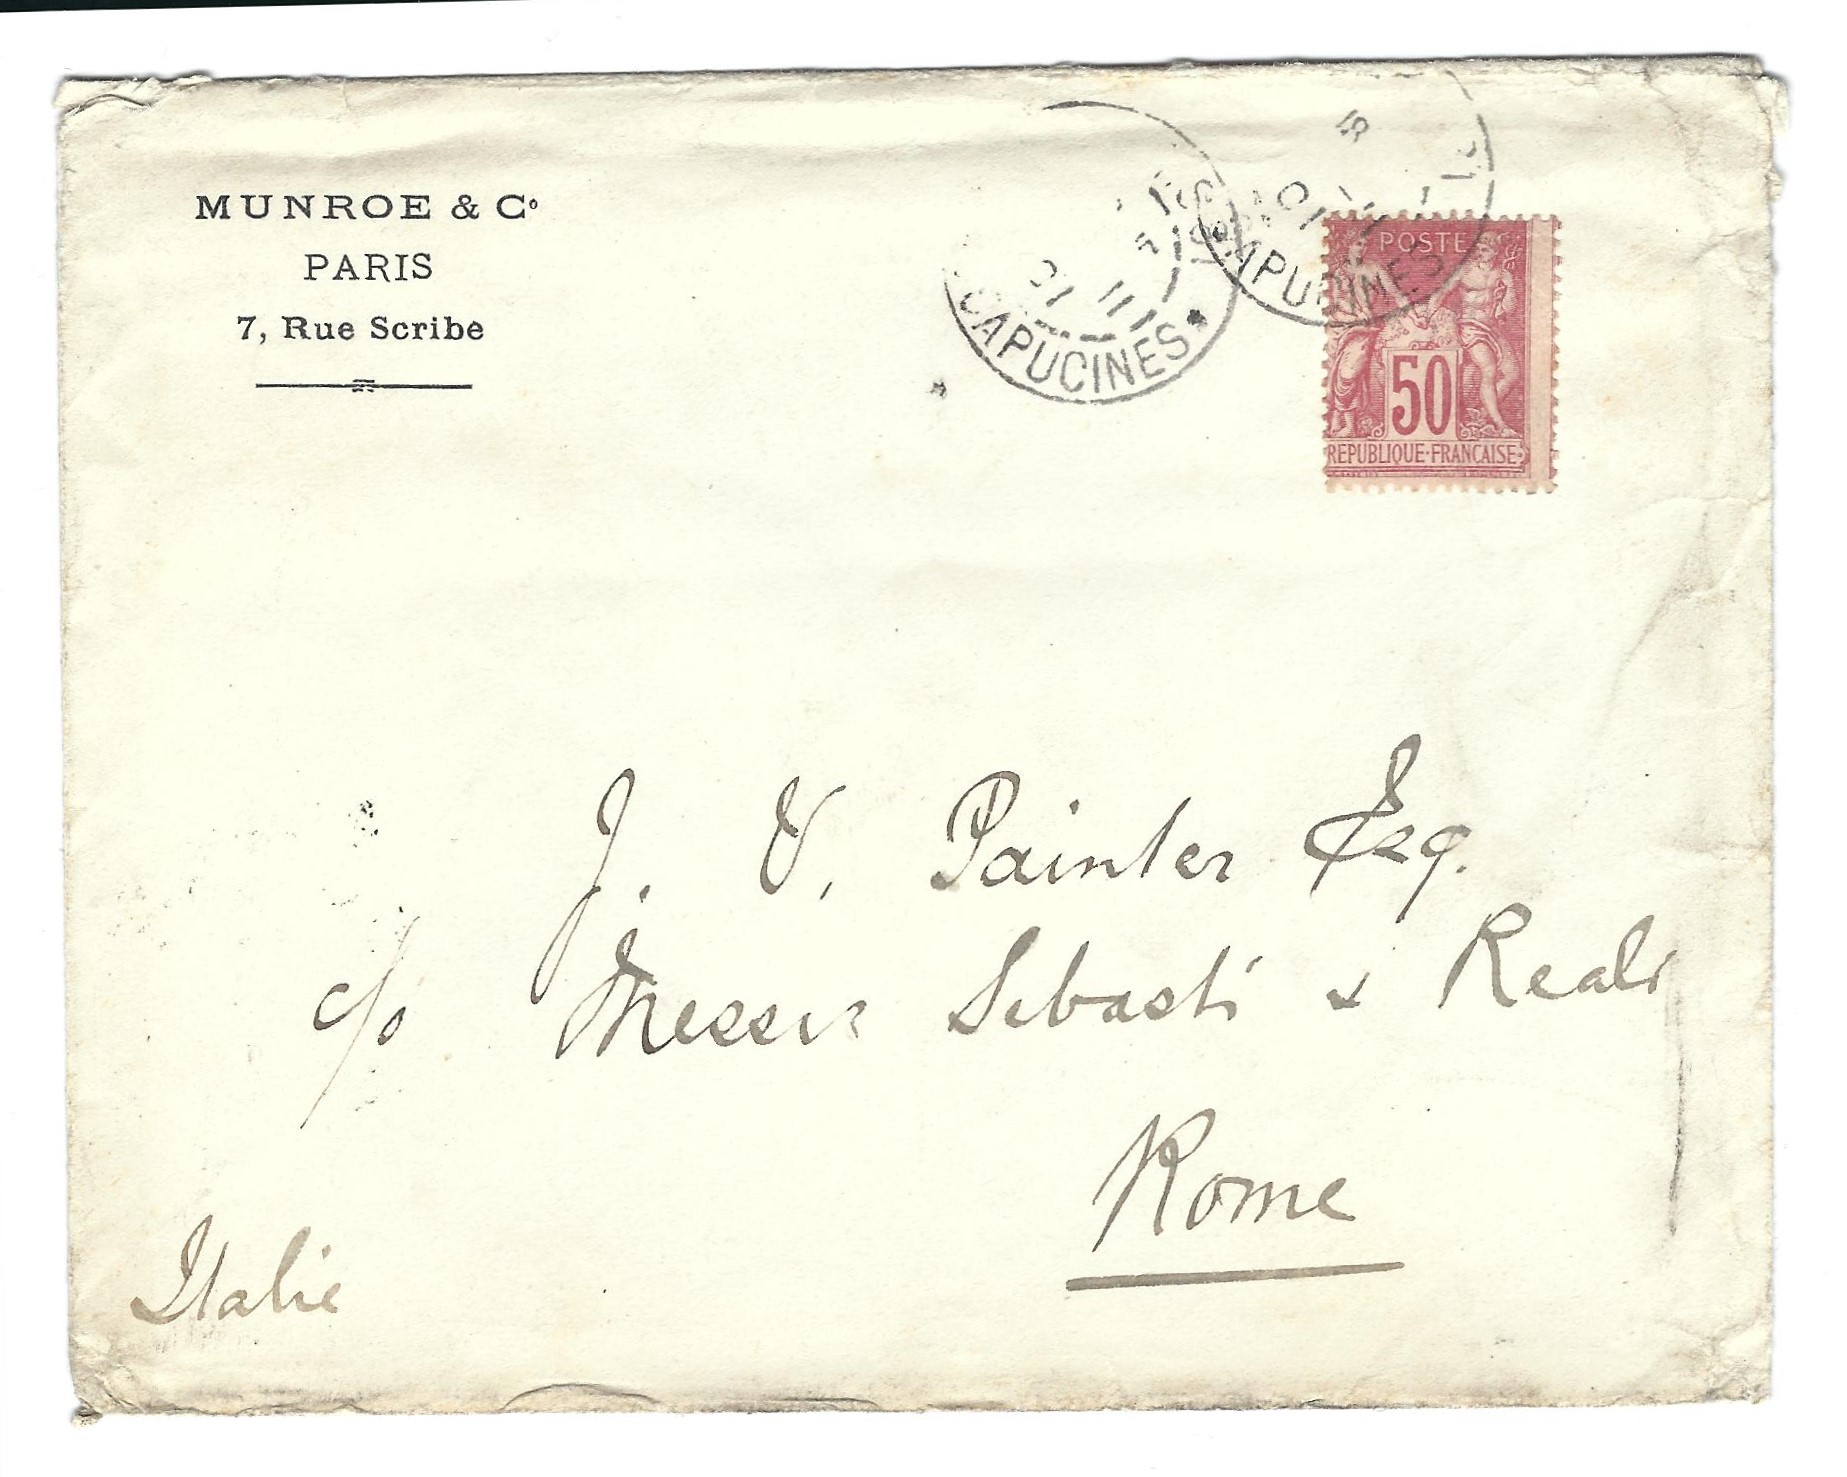 MUNROE & Cº
PARIS
7, Rue Scribe
CAPUCINES
CAPUCINES
POSTE
50
REPUBLIQUE·FRANÇAISE
J. V. Painter Esq.
c/o Messrs Sebasti & Reali
Rome
Italie